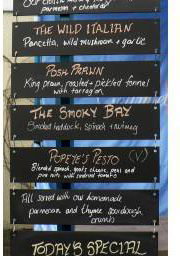 parmesan + chedder
THE WILD ITALIAN
Pancetta, wild mushroom + garlic
POSH PRAWN
King prawn, roasted + pickled fennel
with tarragon
THE SMOKY BAY
Smoked haddock, spinach + nutmeg
POPEYE'S PESTO (V)
Blended spinach, goats cheese, basil and
pine nuts with sundried tomato
All served with our homemade
parmesan and thyme sourdough
crumb
TODAY'S SPECIAL